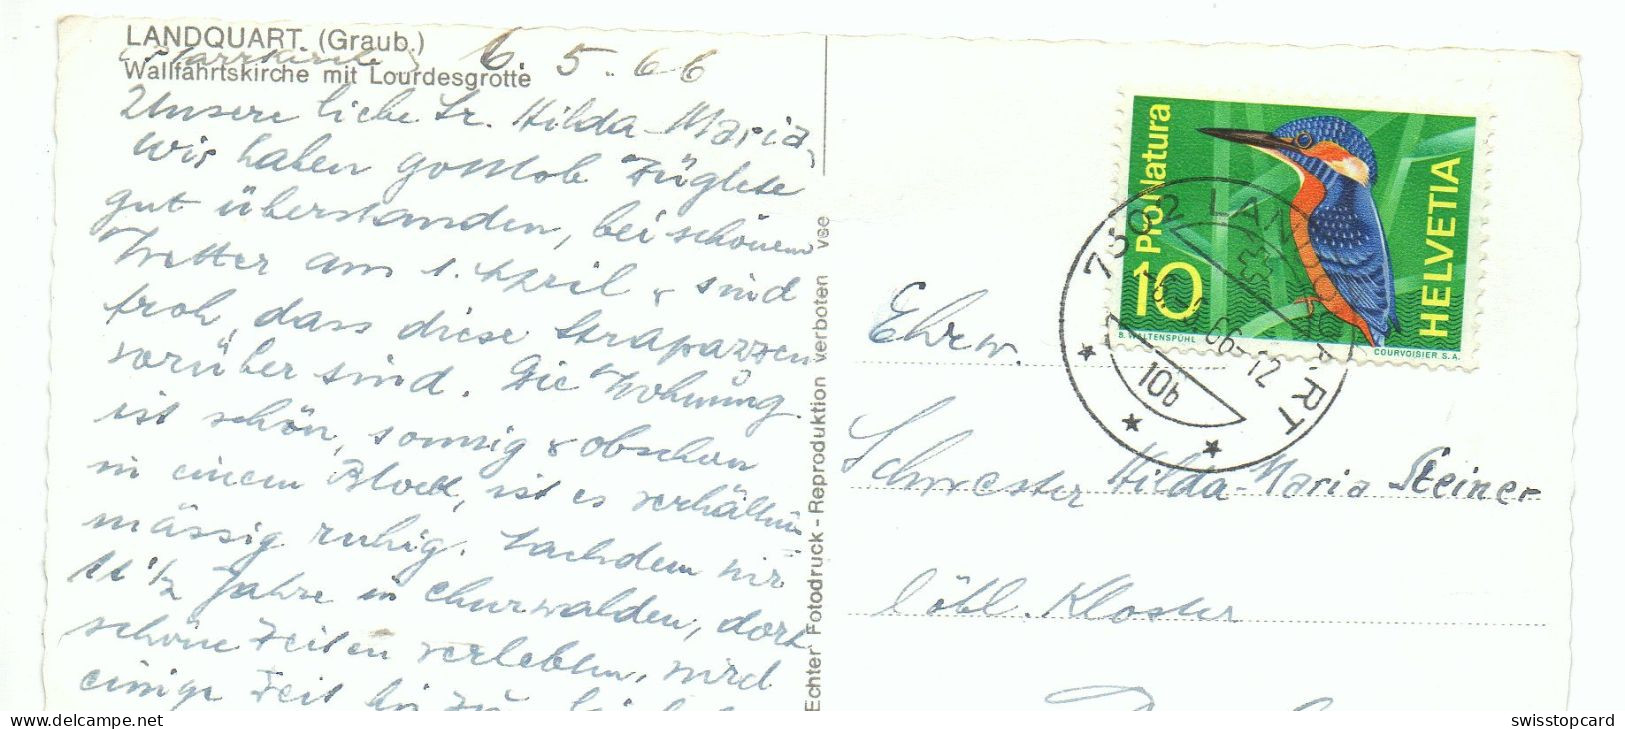 LANDQUART. (Graub.)
(Pfarrkirche) 6. 5. 66
Wallfahrtskirche mit Lourdesgrotte
Unsere liebe Sr. Hilda-Maria,
Wir haben gottlob Züglete
gut überstanden, bei schönem
Wetter am 1. April & sind
froh, dass diese Strapazzen
vorüber sind. Die Wohnung
ist schön, sonnig & obschon
in einem Block, ist es verhältnis
mässig ruhig. Nachdem wir
11 1/2 Jahre in Churwalden, dort
schöne Zeiten verlebten, wird
einige Zeit
Echter Fotodruck - Reproduktion verboten vse
Pro Natura
10
HELVETIA
B. WALTENSPÜHL
COURVOISIER S.A.
7302 LANDQUART
66-12
10b
Ehrw.
Schwester Hilda-Maria Steiner
löbl. Kloster
www.delcampe.net
swisstopcard